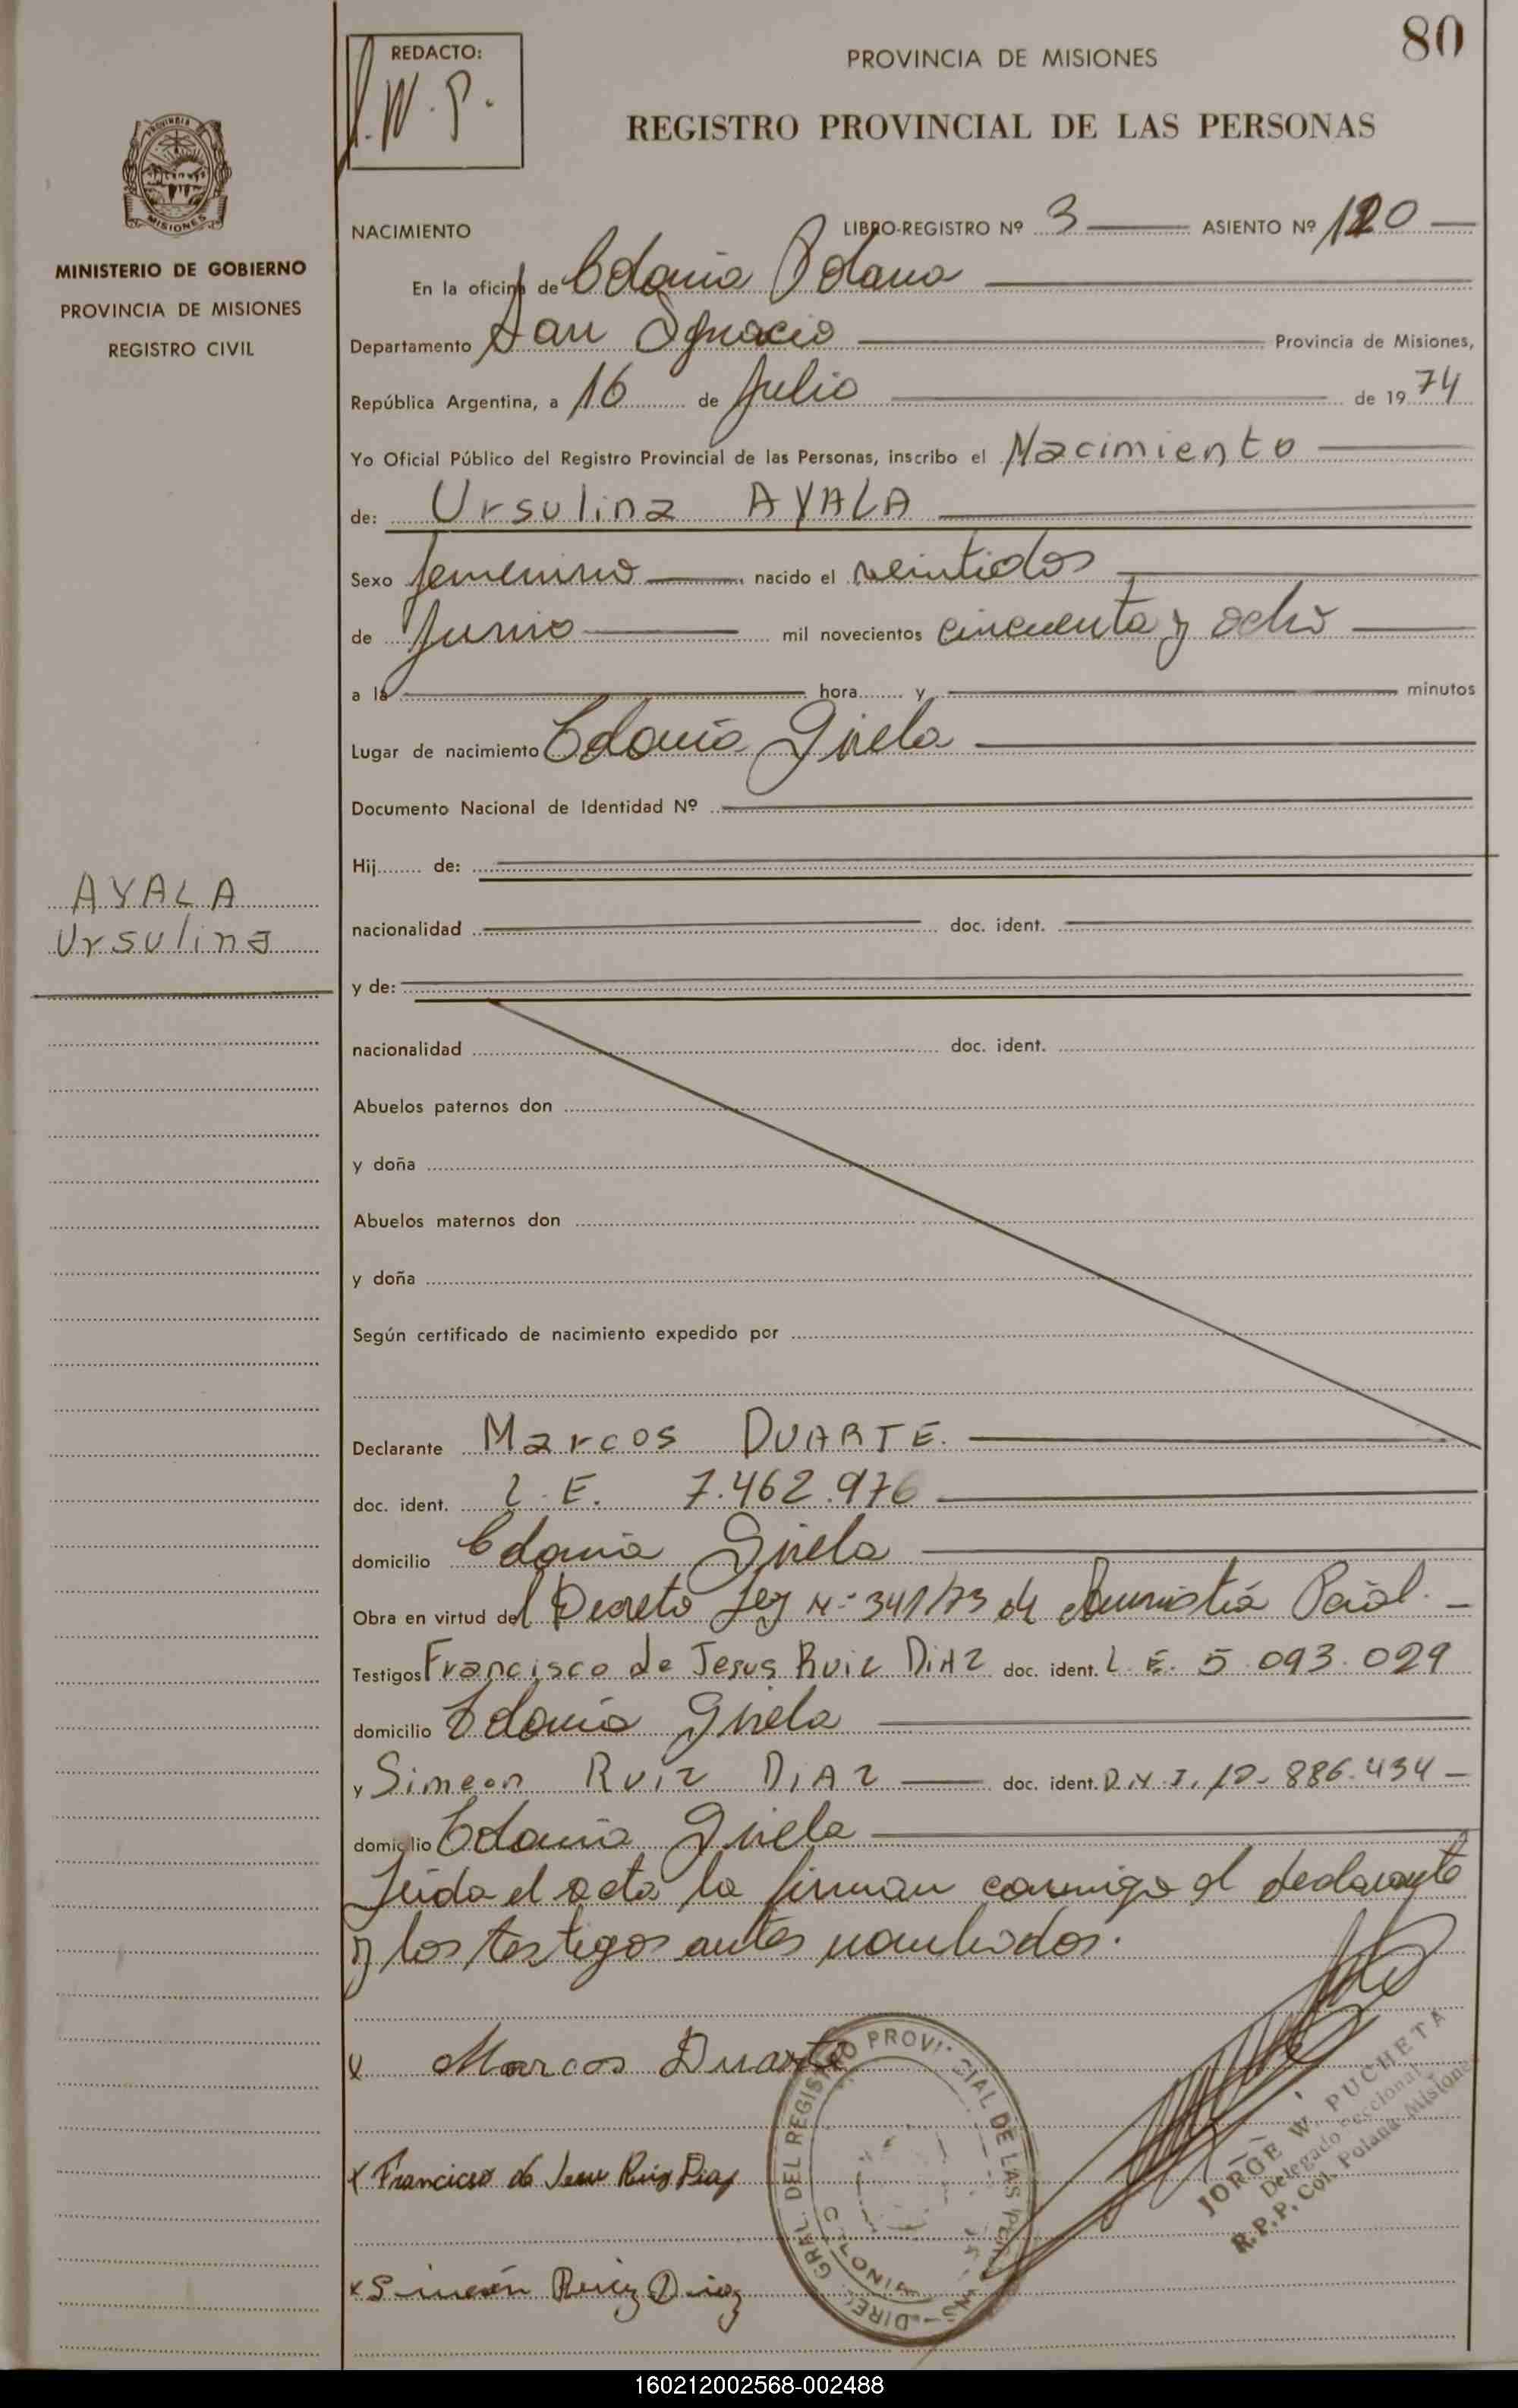 80
REDACTO:
J. W. P.
PROVINCIA DE MISIONES
REGISTRO PROVINCIAL DE LAS PERSONAS
MISIONES
MINISTERIO DE GOBIERNO
PROVINCIA DE MISIONES
REGISTRO CIVIL
NACIMIENTO LIBRO-REGISTRO Nº 3 ASIENTO Nº 120
En la oficina de Colonia Polana
Departamento San Ignacio Provincia de Misiones,
República Argentina, a 16 de Julio de 19 74
Yo Oficial Público del Registro Provincial de las Personas, inscribo el Nacimiento
de: Ursulina AYALA
Sexo femenino nacido el veintidos
de Junio mil novecientos cincuenta y ocho
a la hora y minutos
Lugar de nacimiento Colonia Gisela
Documento Nacional de Identidad Nº
Hij de:
AYALA
Ursulina
nacionalidad doc. ident.
y de:
nacionalidad doc. ident.
Abuelos paternos don
y doña
Abuelos maternos don
y doña
Según certificado de nacimiento expedido por
Declarante Marcos DUARTE.
doc. ident. L. E. 7.462.976
domicilio Colonia Gisela
Obra en virtud del Decreto Ley Nº 341/73 de Amnistia
Testigos Francisco de Jesus Ruiz DIAZ doc. ident. L. E. 5.093.029
domicilio Colonia Gisela
y Simeon Ruiz DIAZ doc. ident. D.N.I. 12.886.434
domicilio Colonia Gisela
Leida el acta la firman conmigo el declarante
y los testigos antes nombrados.
x Marcos Duarte
x Francisco de Jesus Ruiz Diaz
x Simeón Ruiz Diaz
DIREC. GRAL. DEL REGISTRO PROVINCIAL DE LAS PERSONAS
JORGE W. PUCHETA
Delegado Seccional
R.P.P. Col. Polana-Misiones
160212002568-002488